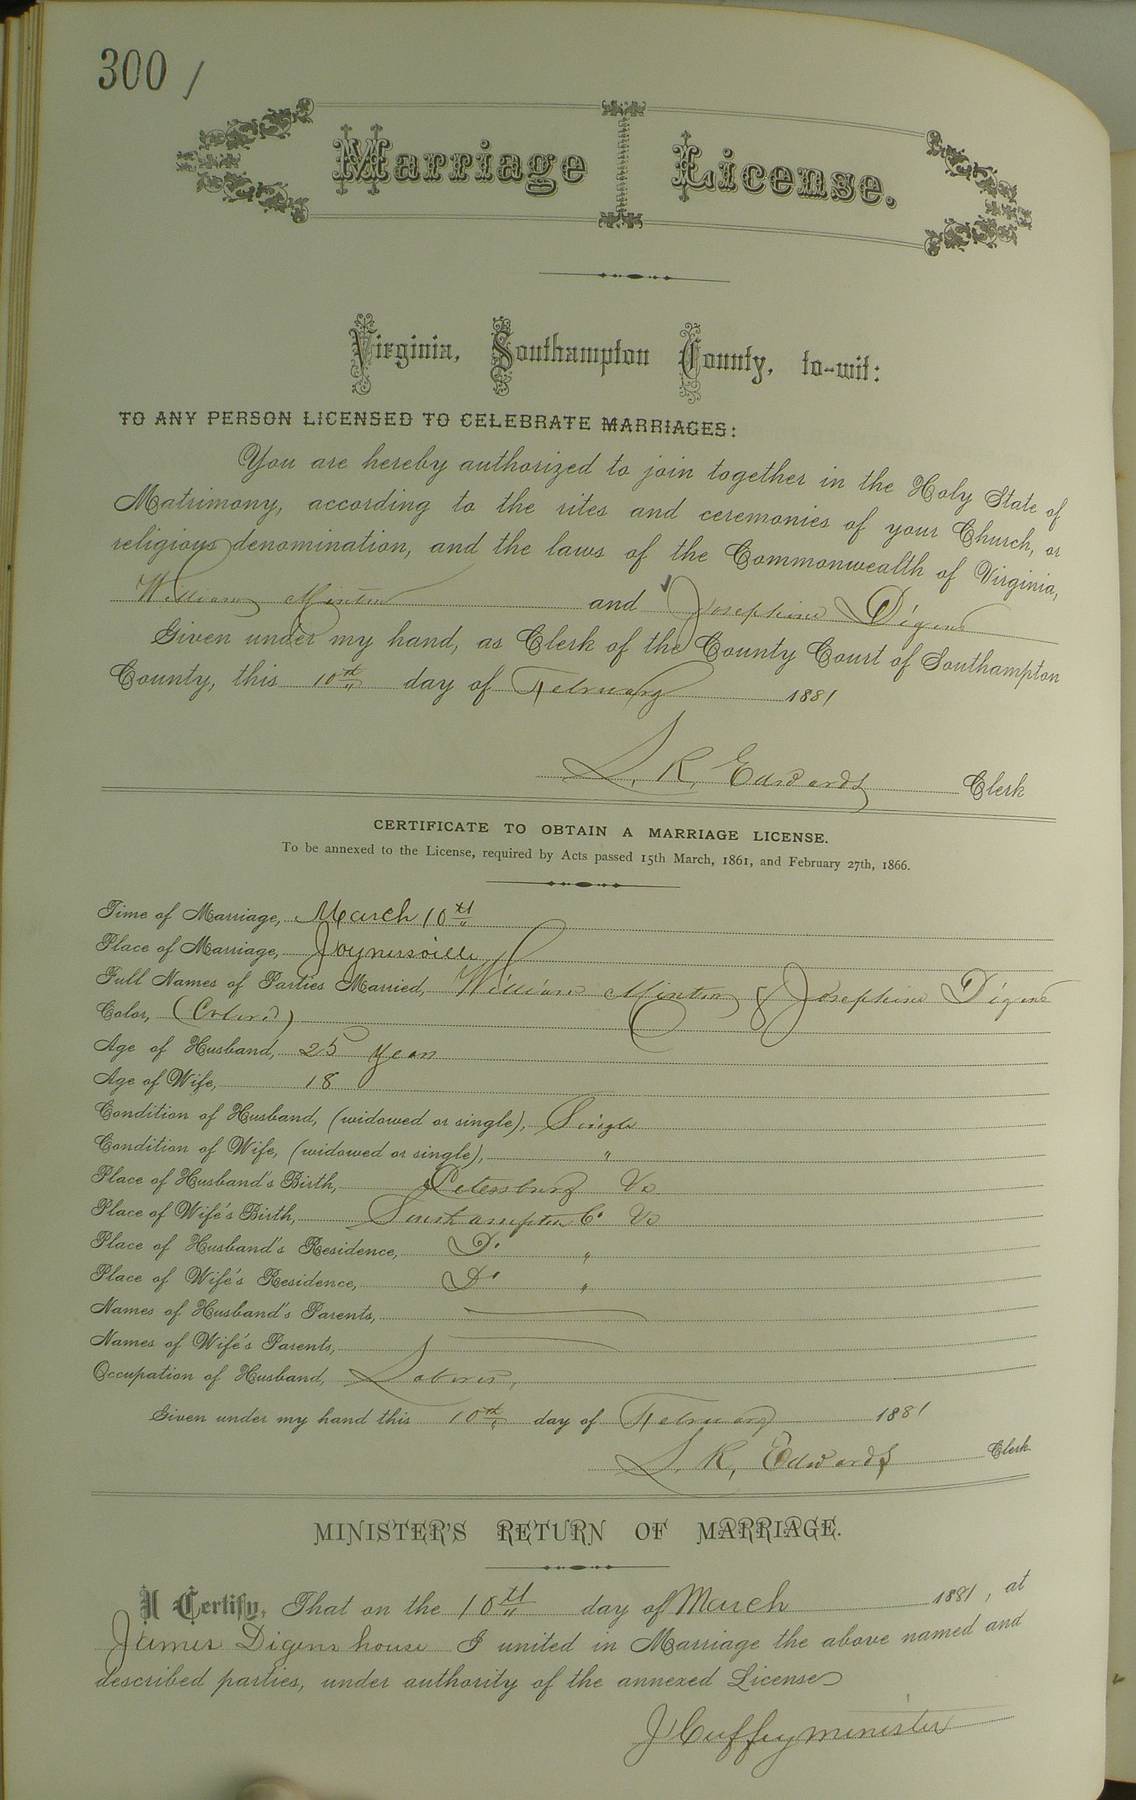 300 /
Marriage License.
Virginia, Southampton County, to-wit:
TO ANY PERSON LICENSED TO CELEBRATE MARRIAGES:
You are hereby authorized to join together in the Holy State of
Matrimony, according to the rites and ceremonies of your Church, or
religious denomination, and the laws of the Commonwealth of Virginia,
William Minton and Josephine Digens
Given under my hand, as Clerk of the County Court of Southampton
County, this 10th day of February 1881
L. R. Edwards Clerk
CERTIFICATE TO OBTAIN A MARRIAGE LICENSE.
To be annexed to the License, required by Acts passed 15th March, 1861, and February 27th, 1866.
Time of Marriage, March 10th
Place of Marriage, Joynersville
Full Names of Parties Married, William Minton & Josephine Digens
Color, (Colored)
Age of Husband, 25 years
Age of Wife, 18
Condition of Husband, (widowed or single), Single
Condition of Wife, (widowed or single), "
Place of Husband's Birth, Petersburg Va
Place of Wife's Birth, Southampton Co Va
Place of Husband's Residence, Do "
Place of Wife's Residence, Do "
Names of Husband's Parents,
Names of Wife's Parents,
Occupation of Husband, Laborer,
Given under my hand this 10th day of February 1881
L. R. Edwards Clerk
MINISTER'S RETURN OF MARRIAGE.
I Certify, That on the 10th day of March 1881, at
James Digens house I united in Marriage the above named and
described parties, under authority of the annexed License
J Cuffey minister